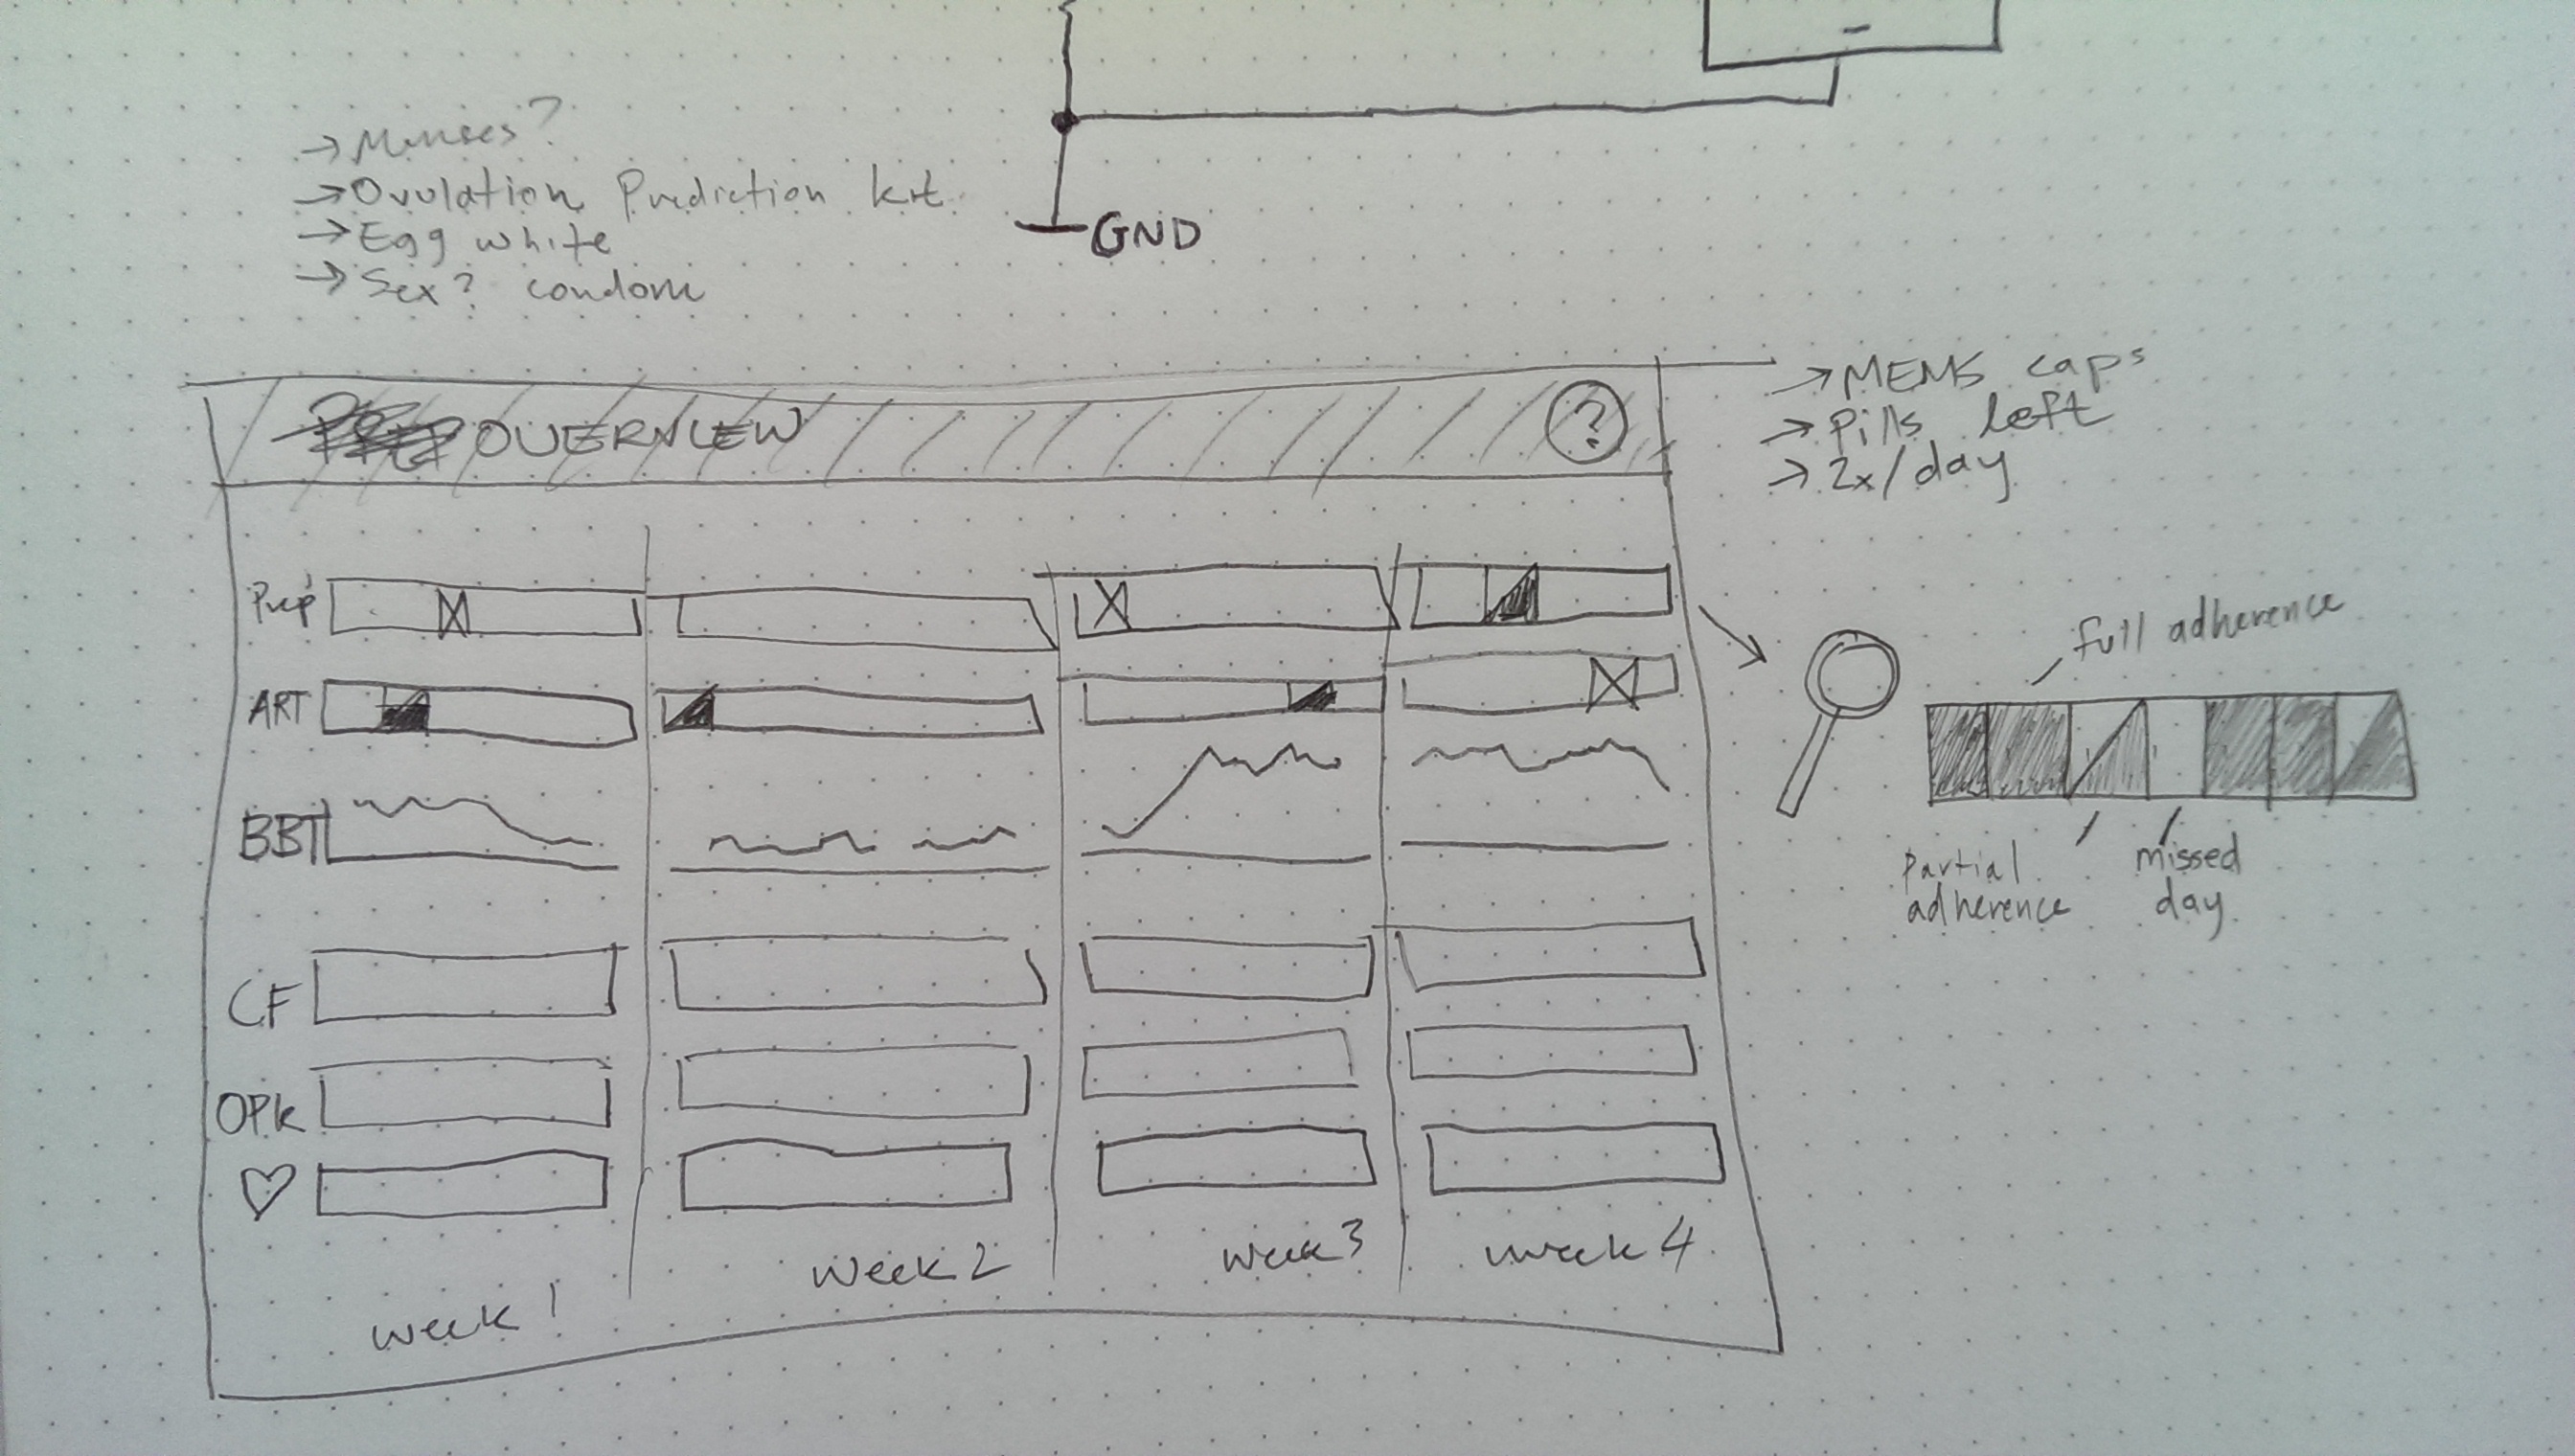 → Menses?
→ Ovulation Prediction kit
→ Egg white
→ Sex? condom
GND
OVERVIEW
?
→ MEMS caps
→ Pills left
→ 2x/day
Prep
ART
BBT
CF
OPk
week 1
week 2
week 3
week 4
full adherence
Partial
adherence
missed
day